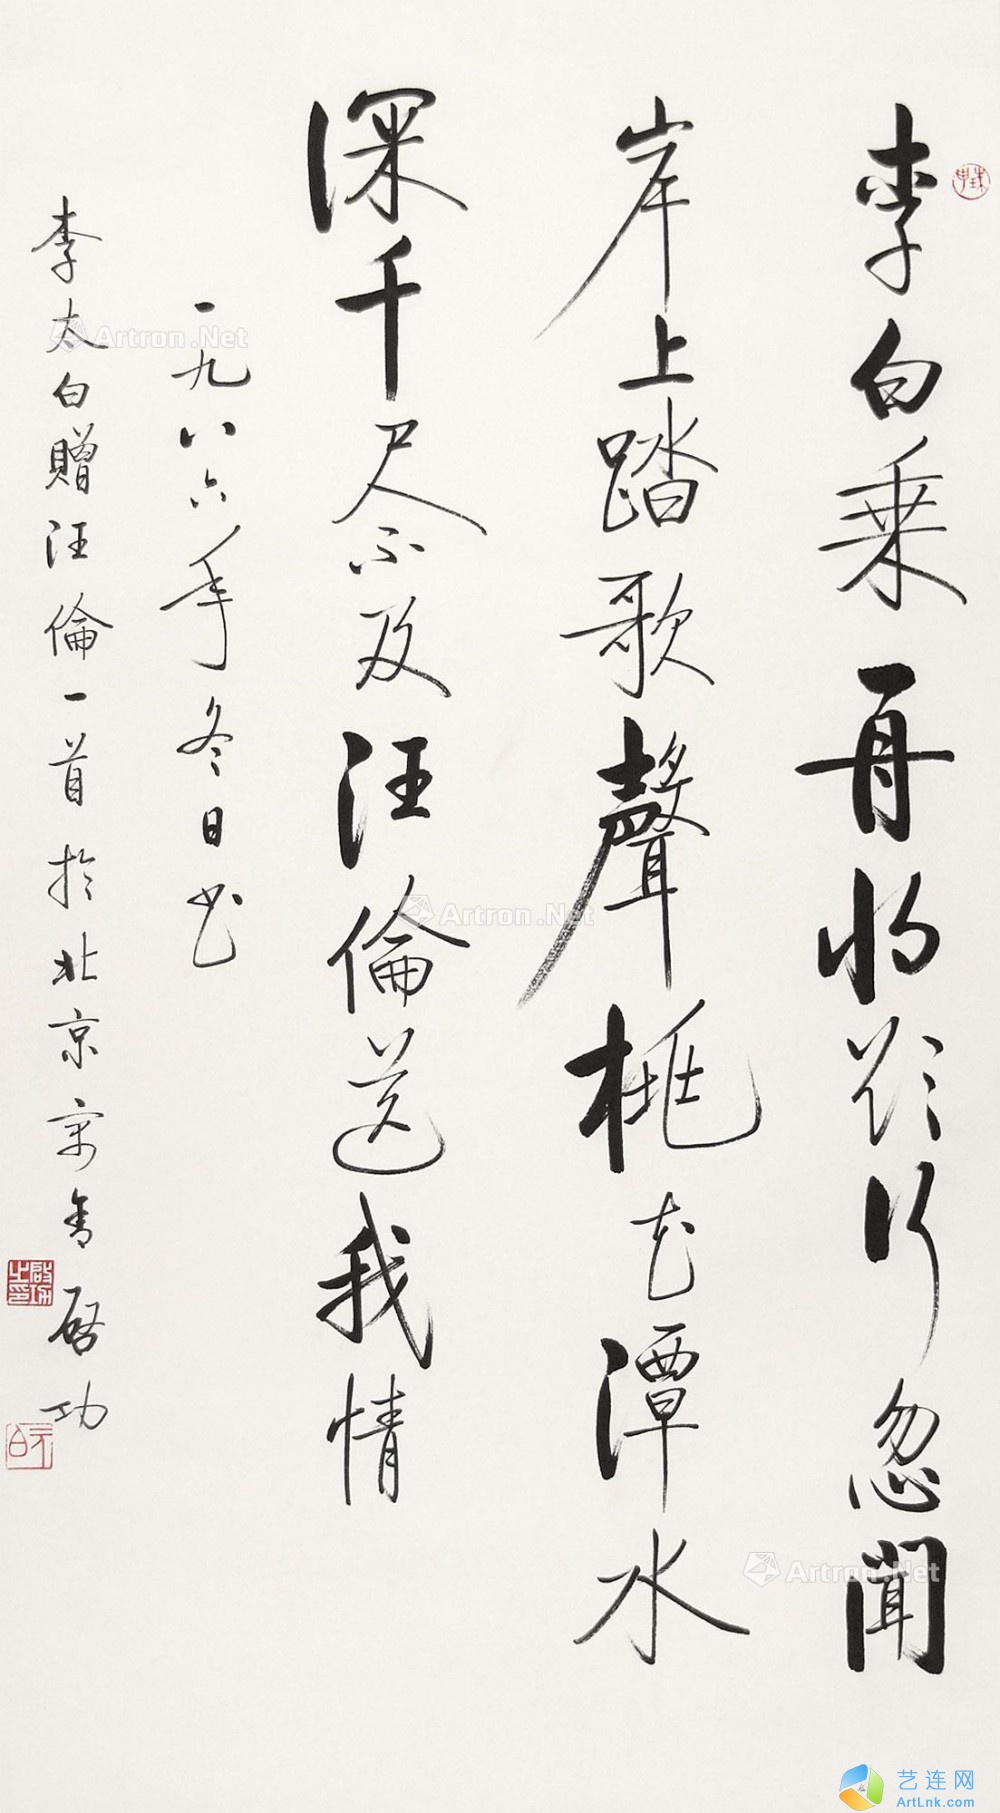 李白乘舟将欲行忽聞
岸上踏歌聲桃花潭水
深千尺不及汪倫送我情
一九八六年冬日书
李太白贈汪倫一首於北京寓舍 啓功
啟功之印
元白
Artron.Net
Artron.Net
Artron.Net
Artron.Net
艺连网
ArtLnk.com